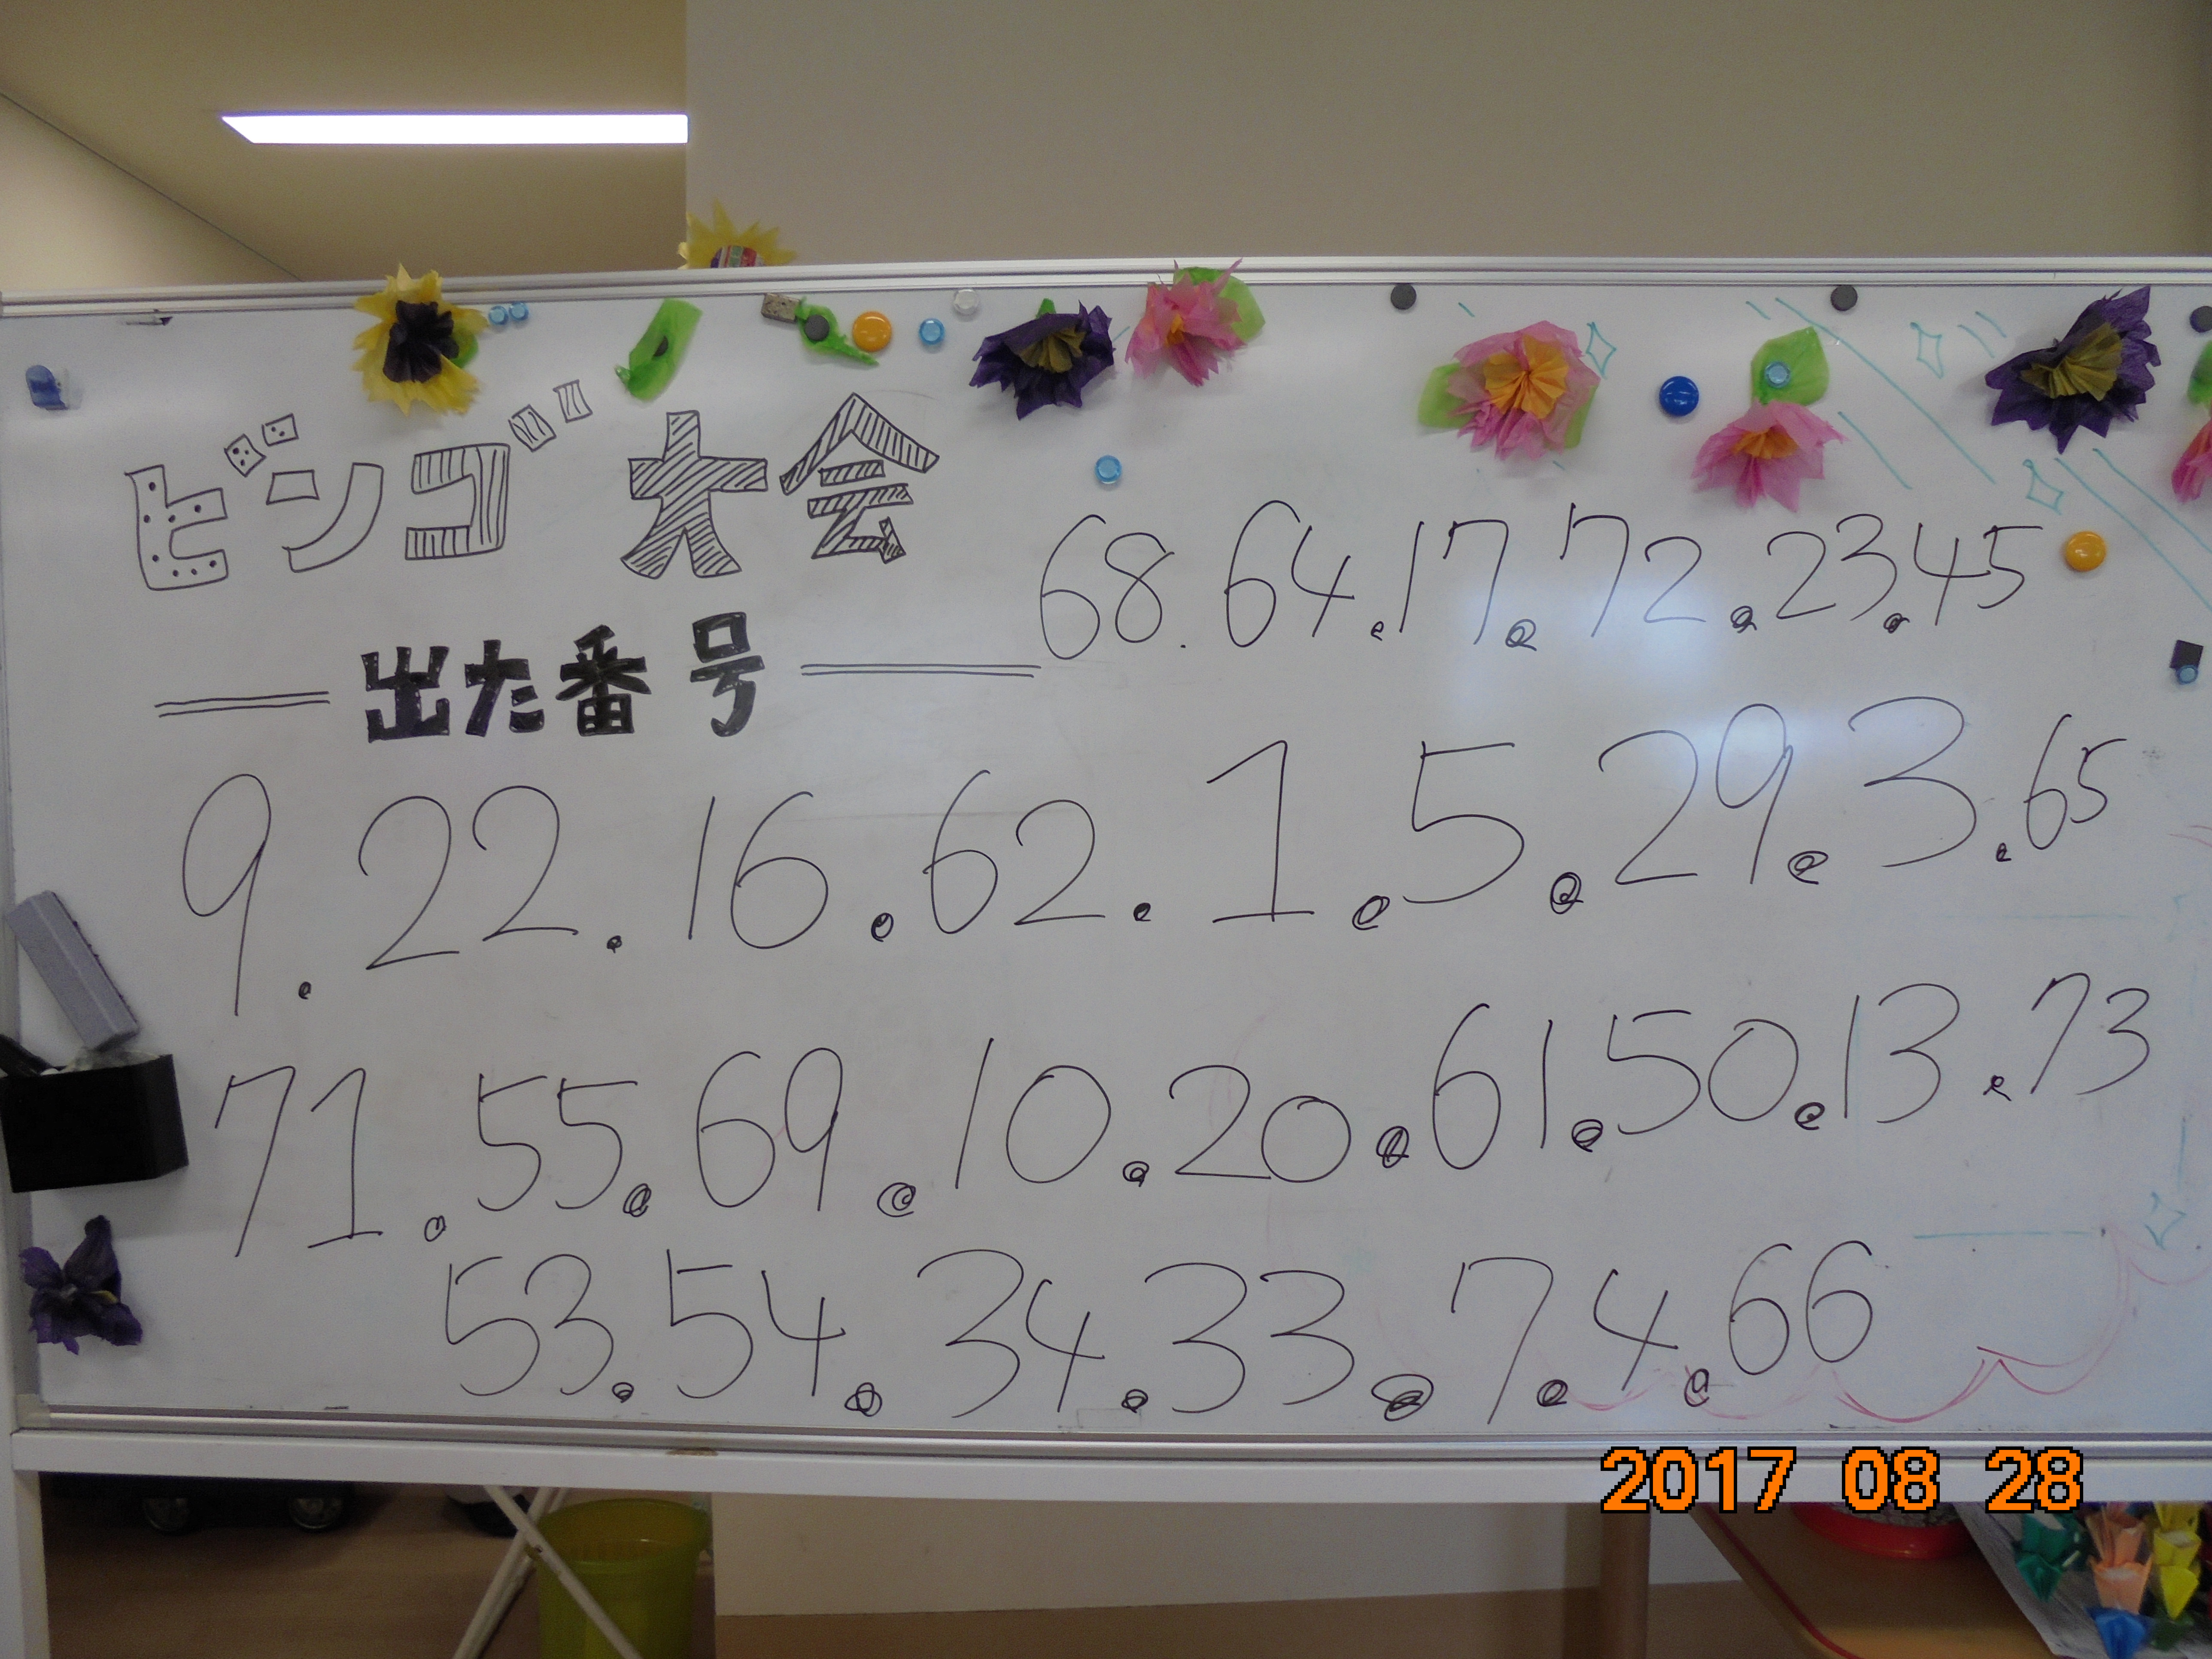 ビンゴ大会
出た番号
68.64.17.72.23.45
9.22.16.62.1.5.29.3.65
71.55.69.10.20.61.50.13.73
53.54.34.33.7.4.66
2017 08 28